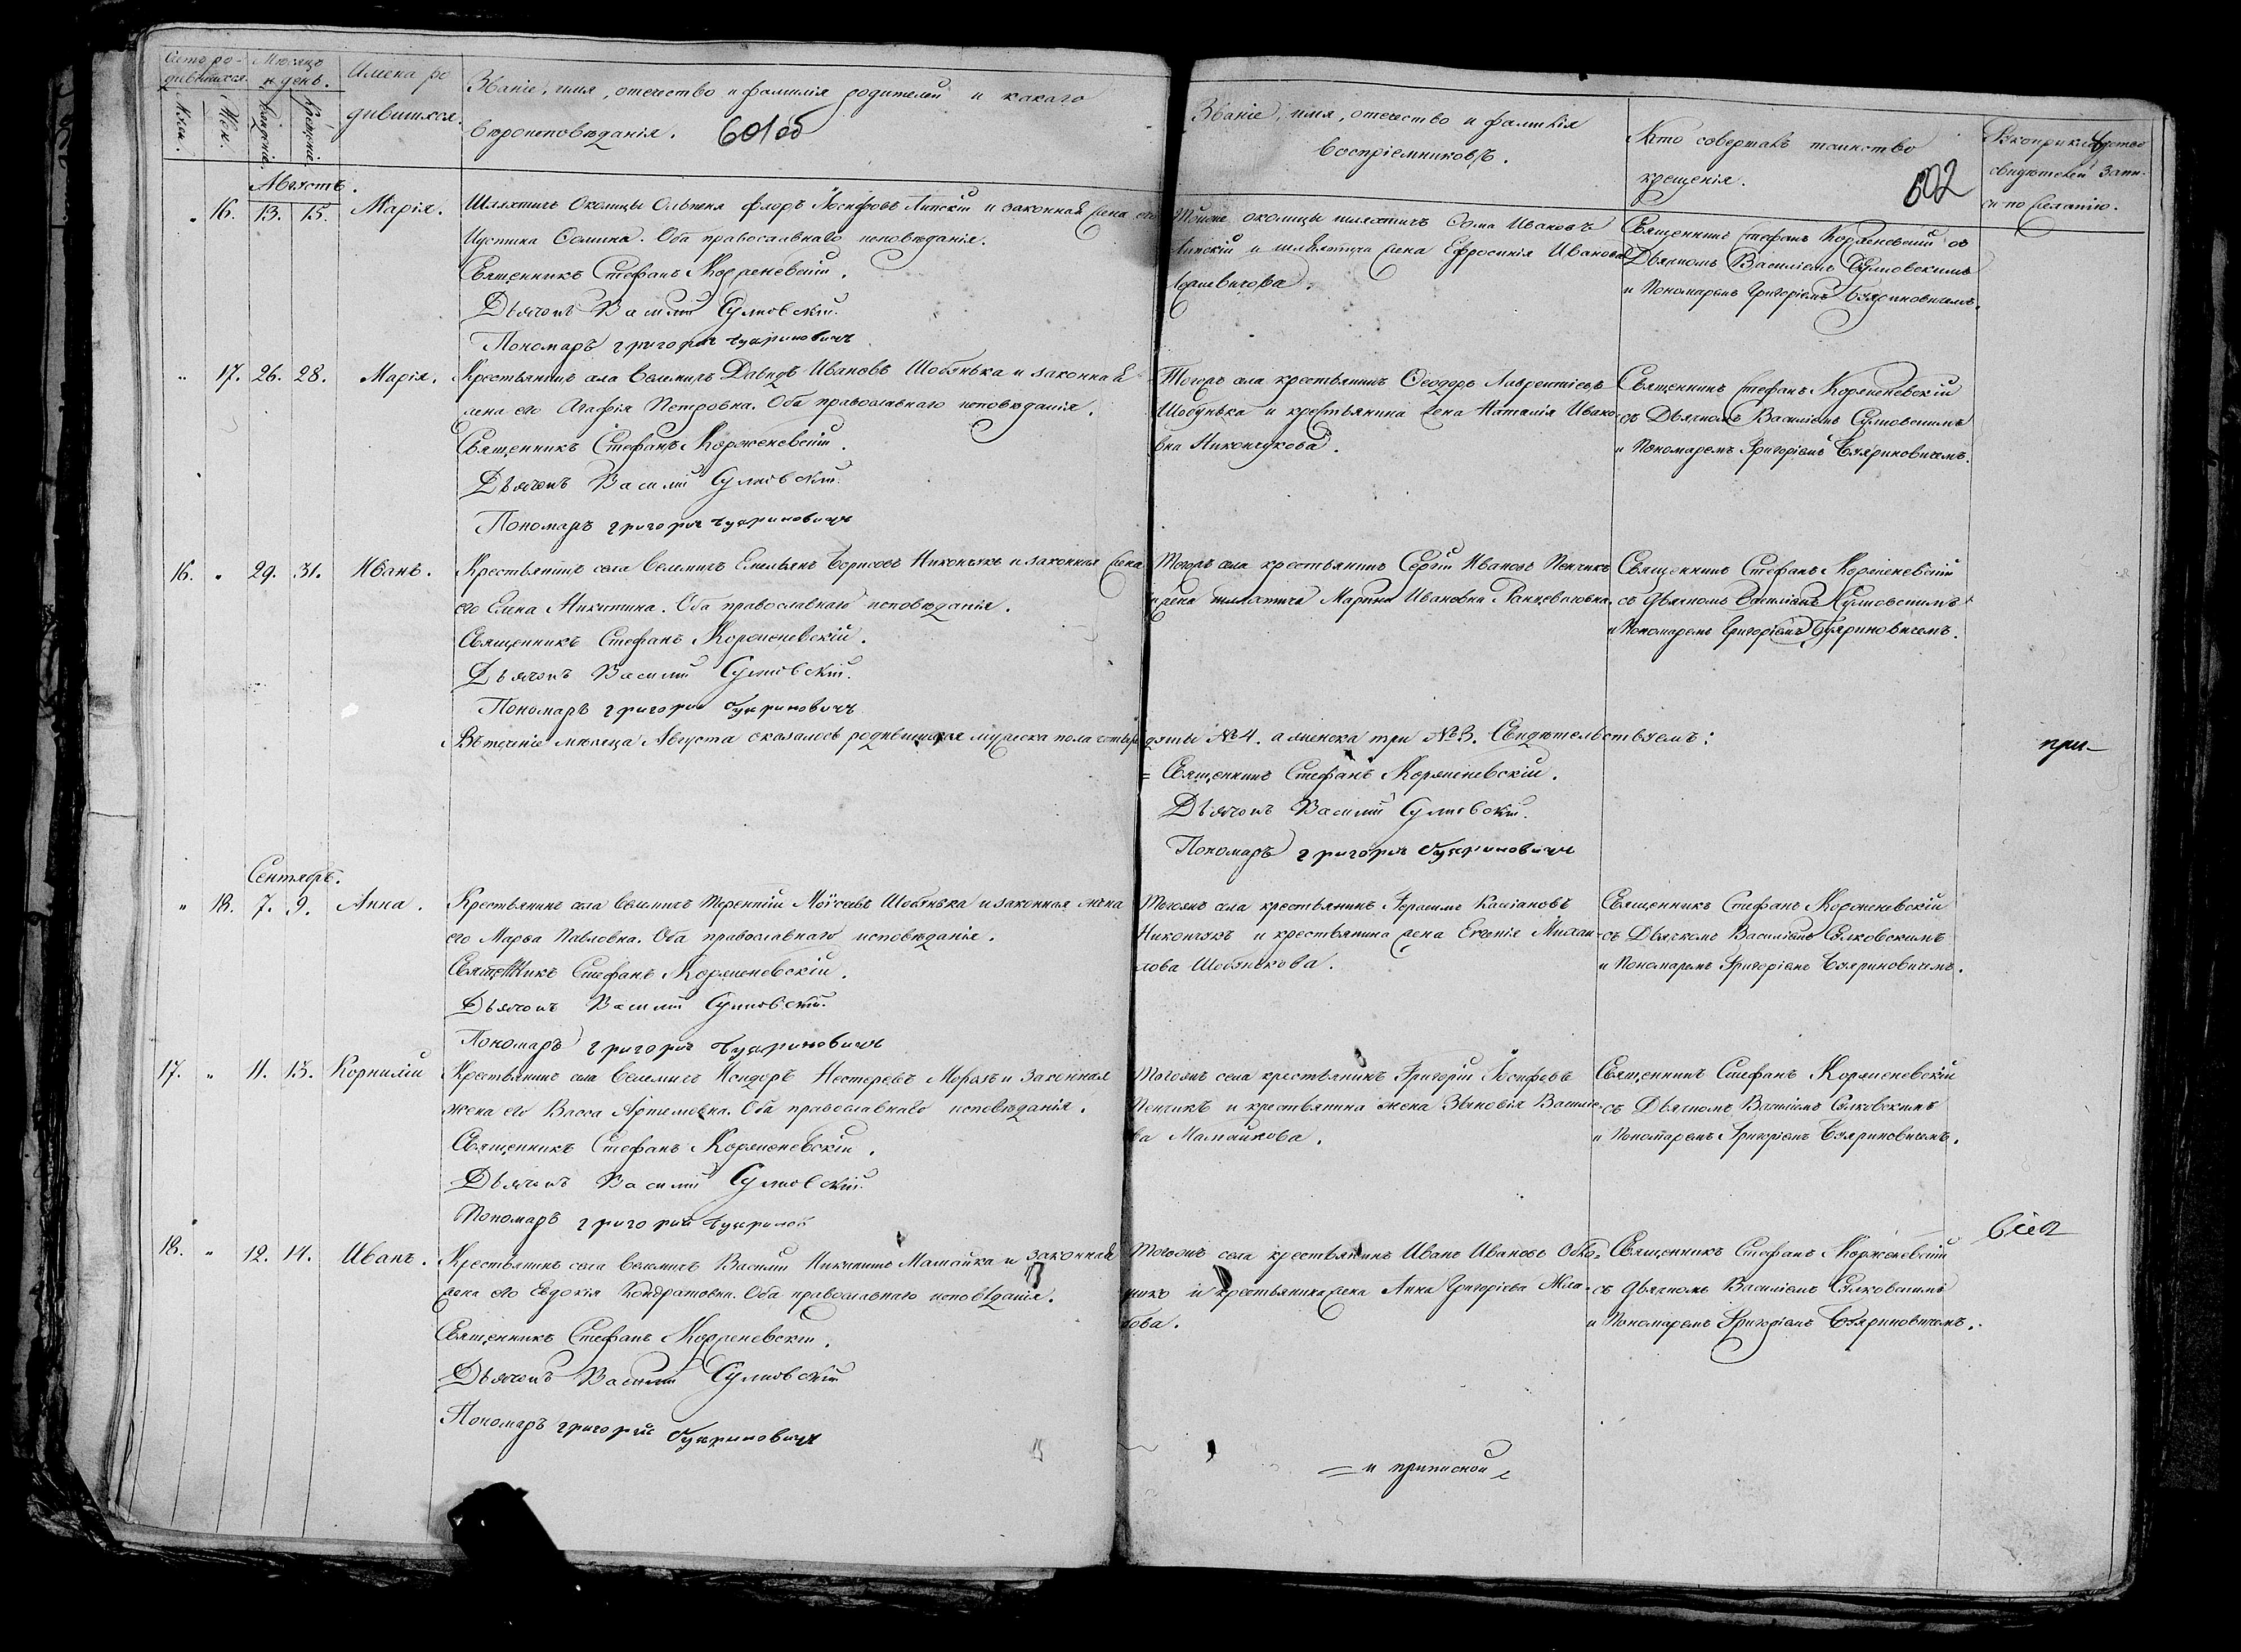 Счетъ ро-
дившихся.
Муж.
Жен.
Мѣсяцъ
и день.
Рожденіе.
Крещеніе.
Имена ро
дившихся.
Званіе, имя, отечество и фамилія родителей и какаго
вѣроисповѣданія.
601об
Званіе, имя, отечество и фамилія
воспріемниковъ.
Кто совершалъ таинство
крещенія.
602
Рукоприкладство
свидѣтелей запи-
си по желанію.
Августъ.
„ 16. 13. 15. Марія.
Шляхтичъ Околицы Ольпеня Флоръ Іосифовъ Липскій и законная жена его
Иустина Сомина. Оба православнаго исповѣданія.
Священникъ Стефанъ Корженевскій.
Дьячокъ Василій Сулковскій.
Пономарь Григорій Букриновичъ
околицы шляхтичъ Сома Ивановъ
Липскій и шляхтича жена Ефросинія Иванова
Священникъ Стефанъ Корженевскій съ
Дьячкомъ Василіемъ Сулковскимъ
и Пономаремъ Григоріемъ Букриновичемъ.
„ 17. 26. 28. Марія.
Крестьянинъ села Велемичъ Давидъ Ивановъ Шобунька и законная
жена его Агафія Петровна. Оба православнаго исповѣданія.
Священникъ Стефанъ Корженевскій.
Дьячокъ Василій Сулковскій.
Пономарь Григорій Букриновичъ
Тогожъ села крестьянинъ Феодоръ Лаврентіевъ
Шобунька и крестьянина жена Наталія Ивано-
вна Никончукова.
Священникъ Стефанъ Корженевскій
съ Дьячкомъ Василіемъ Сулковскимъ
и Пономаремъ Григоріемъ Букриновичемъ.
16. „ 29. 31. Иванъ.
Крестьянинъ села Велемичъ Емельянъ Борисовъ Никончукъ и законная жена
его Елена Никитина. Оба православнаго исповѣданія.
Священникъ Стефанъ Корженевскій.
Дьячокъ Василій Сулковскій.
Пономарь Григорій Букриновичъ
Тогожъ села крестьянинъ Сергій Ивановъ Пенчикъ
и жена шляхтича Марина Ивановна
Священникъ Стефанъ Корженевскій
съ Дьячкомъ Василіемъ Сулковскимъ
и Пономаремъ Григоріемъ Букриновичемъ.
Въ теченіе мѣсяца Августа оказалось родившихся мужеска пола № 4. а женска три № 3. Свидѣтельствуемъ:
при-
= Священникъ Стефанъ Корженевскій.
Дьячокъ Василій Сулковскій.
Пономарь Григорій Букриновичъ
Сентябрь.
„ 18. 7. 9. Анна.
Крестьянинъ села Велемичъ Терентій Моѵсеевъ Шобунька и законная жена
его Марѳа Павловна. Оба православнаго исповѣданія.
Священникъ Стефанъ Корженевскій.
Дьячокъ Василій Сулковскій.
Пономарь Григорій Букриновичъ
Тогожъ села крестьянинъ Герасимъ Касіановъ
Никончукъ и крестьянина жена Евгенія Михаи-
лова Шобунькова.
Священникъ Стефанъ Корженевскій
съ Дьячкомъ Василіемъ Сулковскимъ
и Пономаремъ Григоріемъ Букриновичемъ.
17. „ 11. 13. Корнилій
Крестьянинъ села Велемичъ Исидоръ Нестеревъ Морозъ и законная
жена его Васса Артемовна. Оба православнаго исповѣданія.
Священникъ Стефанъ Корженевскій.
Дьячокъ Василій Сулковскій.
Пономарь Григорій Букринов
Тогожъ села крестьянинъ Григорій Іосифовъ
Пенчикъ и крестьянина жена Зѣновія Василье-
ва Мамайкова.
Священникъ Стефанъ Корженевскій
съ Дьячкомъ Василіемъ Сулковскимъ
и Пономаремъ Григоріемъ Букриновичемъ.
18. „ 12. 14. Иванъ.
Крестьянинъ села Велемичъ Василій Никитинъ Мамайка и законная
жена его Евдокія Кондратовна. Оба православнаго исповѣданія.
Священникъ Стефанъ Корженевскій.
Дьячокъ Василій Сулковскій
Пономарь Григорій Букриновичъ
Тогожъ села крестьянинъ Иванъ Ивановъ
и крестьянина жена Анна Григорьева
Священникъ Стефанъ Корженевскій
съ Дьячкомъ Василіемъ Сулковскимъ
и Пономаремъ Григоріемъ Букриновичемъ.
= и припискои